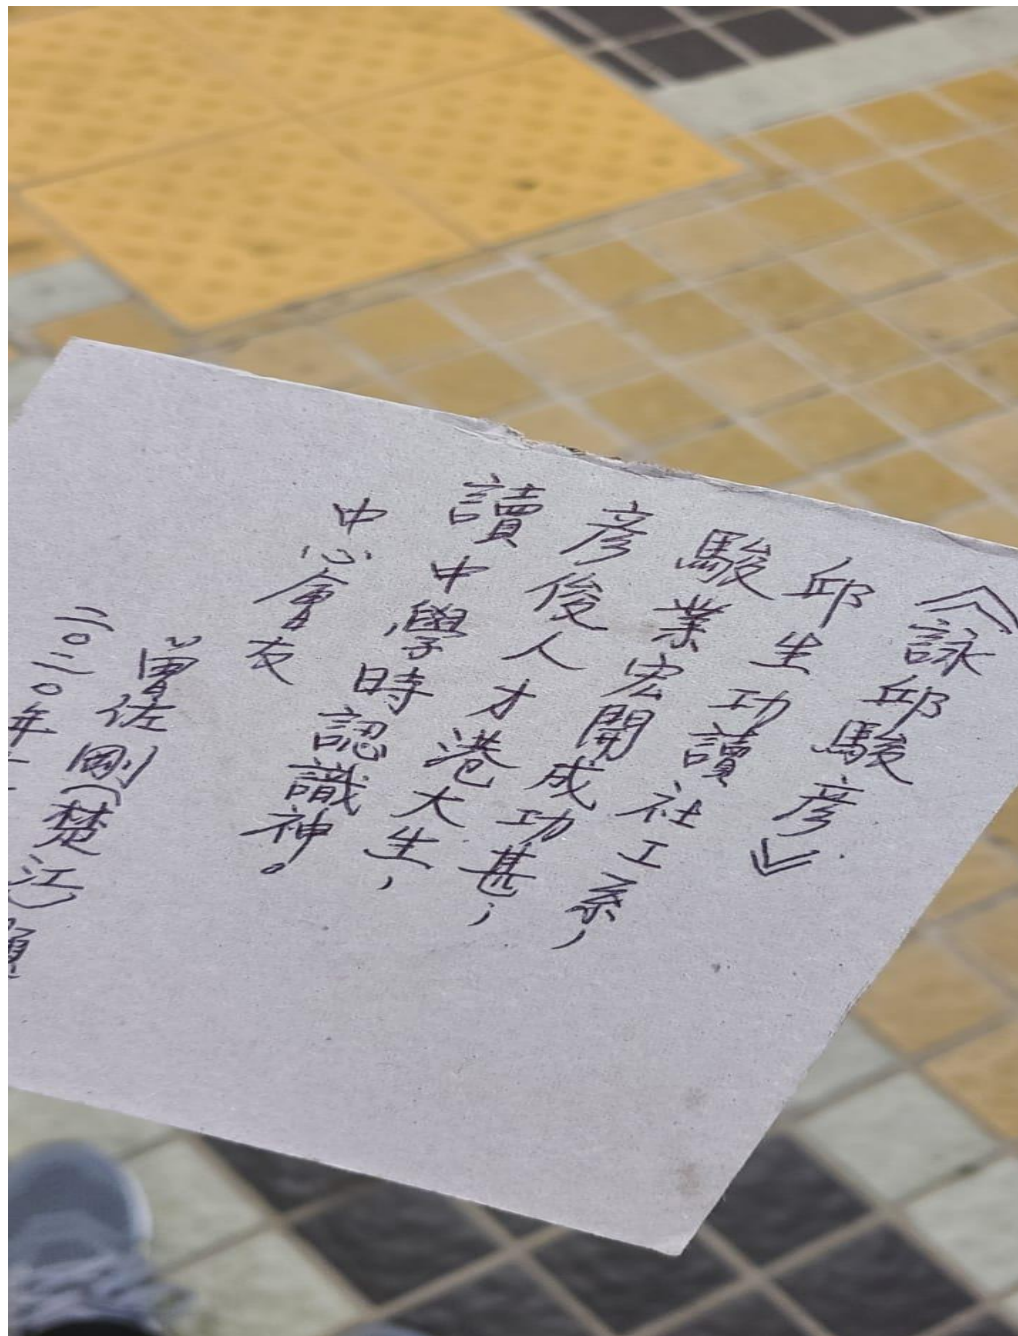 《詠邱駿彥》
邱生功讀社工系,
駿業宏開成功甚,
彥俊人才港大生,
讀中學時認識神。
中心會友
曾佐剛(楚江)題
二〇二〇年